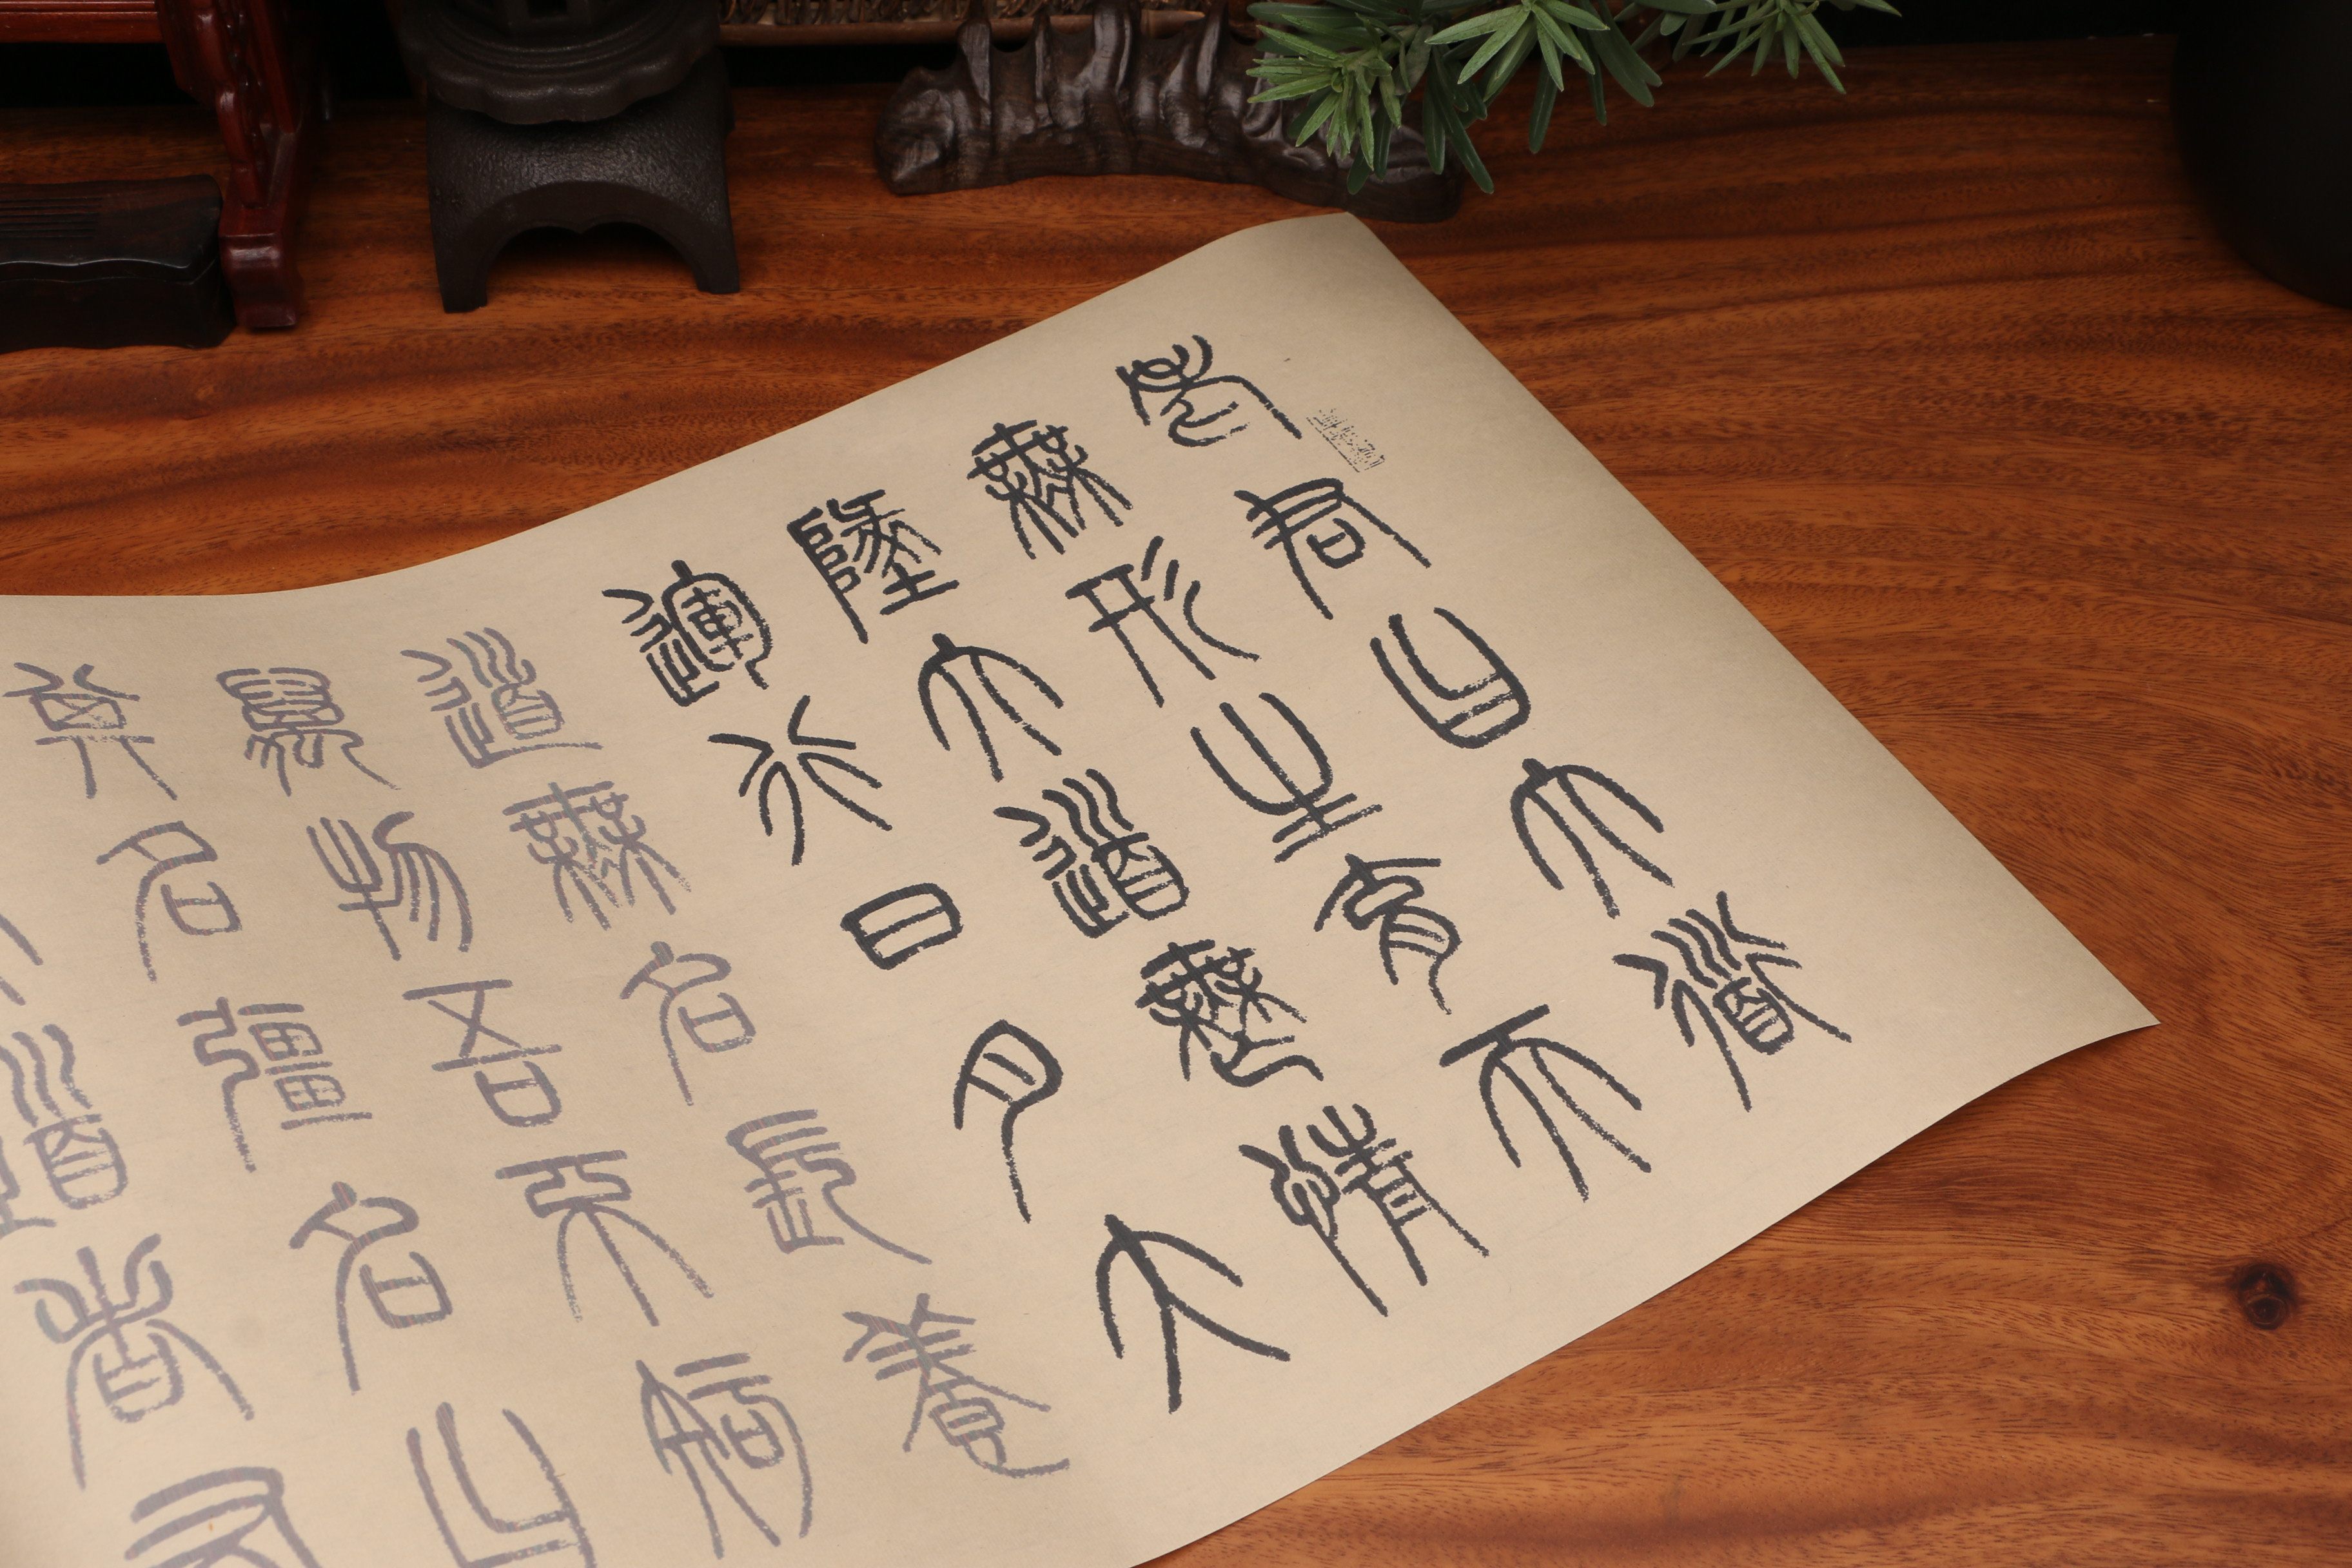 老君曰大道
無形生育天
墬大道無情
運行日月大
道無名長養
萬物吾不知
其名彊名曰
道者有